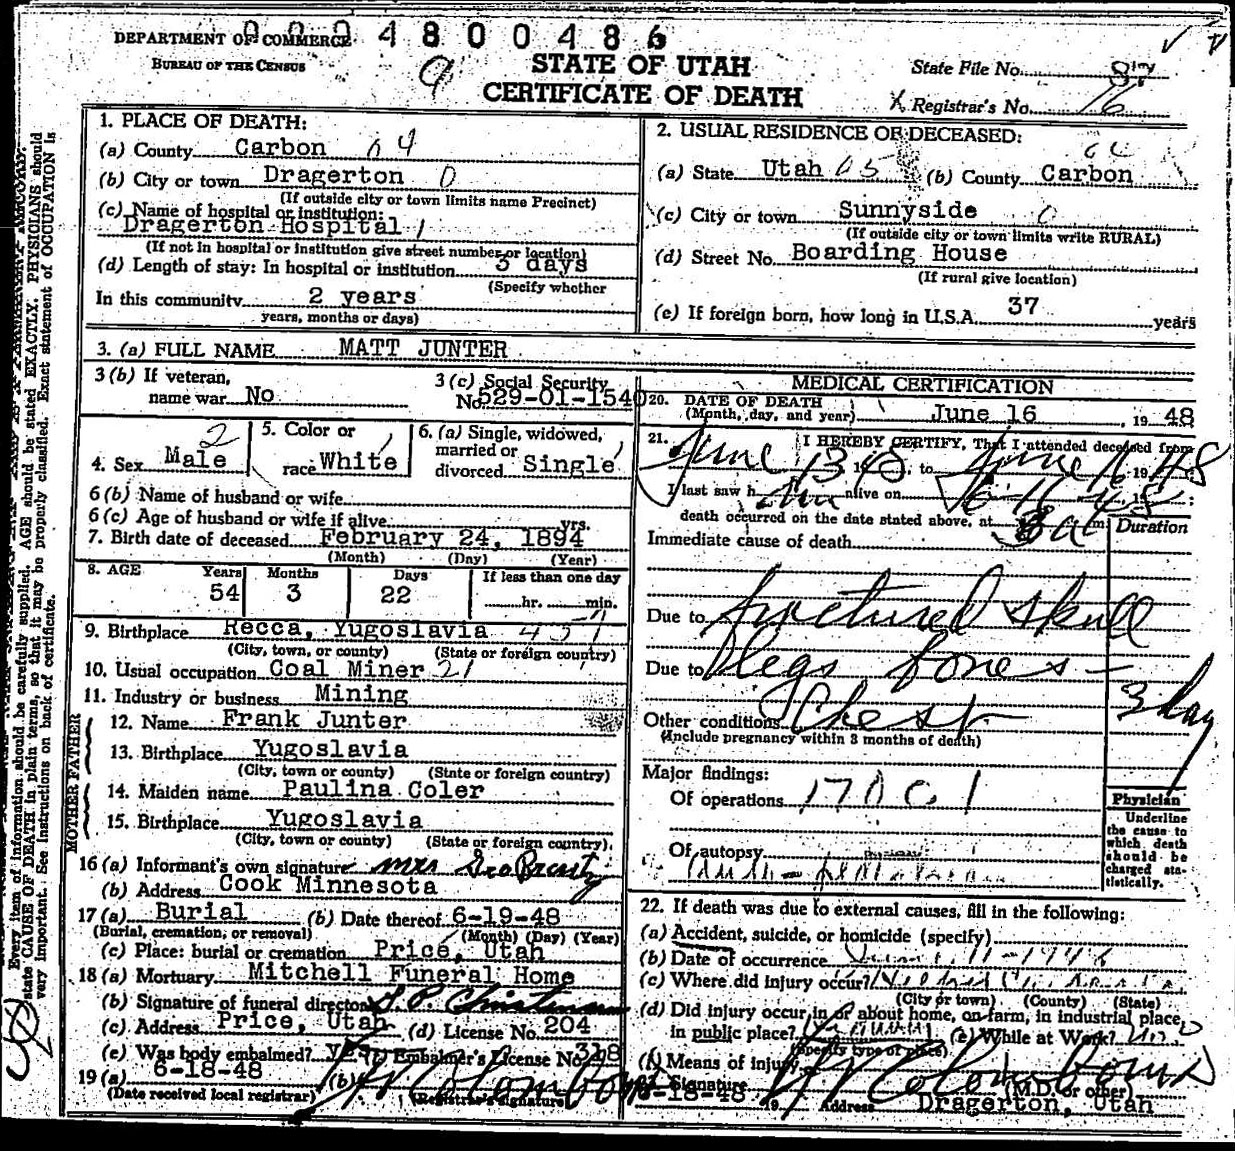 0004800486
DEPARTMENT OF COMMERCE
BUREAU OF THE CENSUS
9
STATE OF UTAH
CERTIFICATE OF DEATH
State File No.
X Registrar's No. 76
Every item of information should be carefully supplied. AGE should be stated EXACTLY. PHYSICIANS should
state CAUSE OF DEATH in plain terms, so that it may be properly classified. Exact statement of OCCUPATION is
very important. See instructions on back of certificate.
1. PLACE OF DEATH:
(a) County Carbon 04
(b) City or town Dragerton 0
(If outside city or town limits name Precinct)
(c) Name of hospital or institution:
Dragerton Hospital 1
(If not in hospital or institution give street number or location)
(d) Length of stay: In hospital or institution 3 days
(Specify whether
In this community 2 years
years, months or days)
2. USUAL RESIDENCE OF DECEASED:
(a) State Utah 05 (b) County Carbon
(c) City or town Sunnyside 0
(If outside city or town limits write RURAL)
(d) Street No. Boarding House
(If rural give location)
(e) If foreign born, how long in U.S.A. 37 years
3. (a) FULL NAME MATT JUNTER
3 (b) If veteran,
name war No
3 (c) Social Security
No. 529-01-1540
4. Sex Male 2
5. Color or
race White
6. (a) Single, widowed,
married or
divorced Single
6 (b) Name of husband or wife
6 (c) Age of husband or wife if alive yrs.
7. Birth date of deceased February 24, 1894
(Month) (Day) (Year)
8. AGE Years Months Days If less than one day
54 3 22 hr. min.
9. Birthplace Recca, Yugoslavia 457
(City, town, or county) (State or foreign country)
10. Usual occupation Coal Miner 21
11. Industry or business Mining
FATHER
12. Name Frank Junter
13. Birthplace Yugoslavia
(City, town or county) (State or foreign country)
MOTHER
14. Maiden name Paulina Coler
15. Birthplace Yugoslavia
(City, town or county) (State or foreign country).
16 (a) Informant's own signature Mrs Geo
(b) Address Cook Minnesota
17 (a) Burial (b) Date thereof 6-19-48
(Burial, cremation, or removal) (Month) (Day) (Year)
(c) Place: burial or cremation Price, Utah
18 (a) Mortuary Mitchell Funeral Home
(b) Signature of funeral director
(c) Address Price, Utah (d) License No. 204
(e) Was body embalmed? yes (f) Embalmer's License No. 318
19 (a) 6-18-48 (b)
(Date received local registrar) (Registrar's signature)
MEDICAL CERTIFICATION
20. DATE OF DEATH
(Month, day, and year) June 16, 19 48
21. I HEREBY CERTIFY, That I attended deceased from
June 13, 1948, to June 16, 1948
I last saw him alive on
death occurred on the date stated above, at 3 a m
Duration
Immediate cause of death
Due to fractured skull
Due to legs bones
Chest
3 day
Other conditions
(Include pregnancy within 3 months of death)
Major findings:
Of operations
Of autopsy
Physician
Underline
the cause to
which death
should be
charged sta-
tistically.
22. If death was due to external causes, fill in the following:
(a) Accident, suicide, or homicide (specify)
(b) Date of occurrence
(c) Where did injury occur?
(City or town) (County) (State)
(d) Did injury occur in or about home, on farm, in industrial place,
in public place? (e) While at Work?
(Specify type of place)
(f) Means of injury
Signature
(M.D. or other)
6-18-48 19 Address Dragerton, Utah